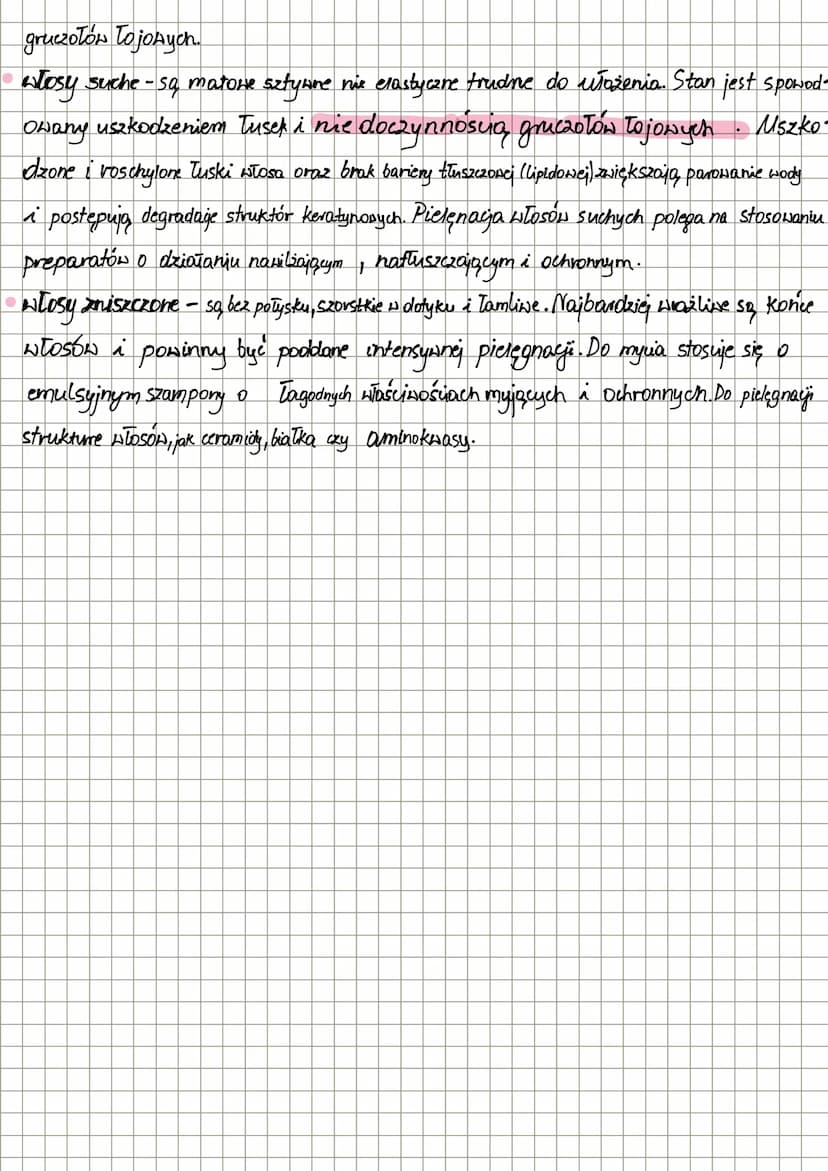 gruczołów łojowych.
• włosy suche - są matowe sztywne nie elastyczne trudne do ułożenia. Stan jest spowod-
owany uszkodzeniem łusek i nie doczynnością gruczołów łojowych . Uszko-
dzone i roschylone łuski włosa oraz brak bariery tłuszczowej (lipidowej) zwiększają parowanie wody
i postępują degradaje struktór keratynowych. Pielęnacja włosów suchych polega na stosowaniu
preparatów o działaniu nawilżającym , natłuszczającym i ochronnym.
• włosy zniszczone - są bez połysku, szorstkie w dotyku i łamliwe. Najbardziej wrażliwe są końce
włosów i powinny być poddane intensywnej pielęgnacji. Do mycia stosuje się o
emulsyjnym szampony o łagodnych właściwościach myjących i ochronnych. Do pielęgnacji
strukture włosów, jak ceramidy, białka czy aminokwasy.